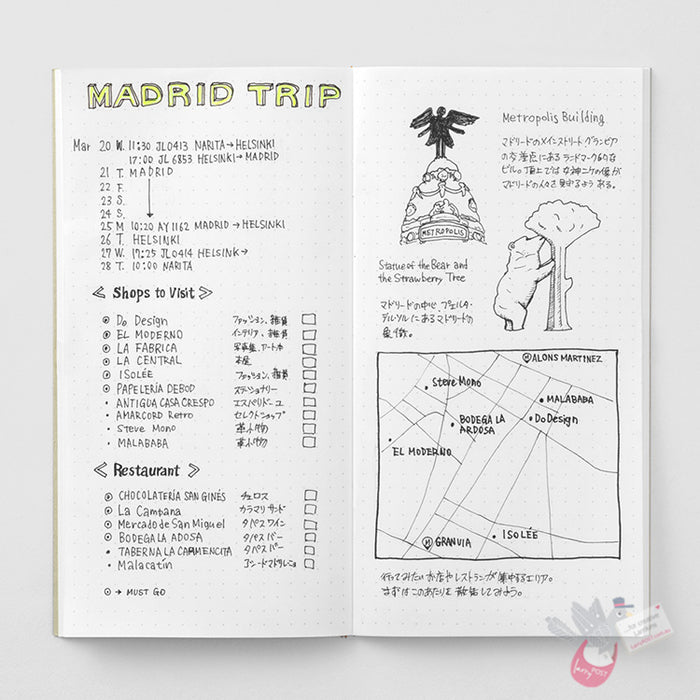 MADRID TRIP
Mar 20 W. 11:30 JL0413 NARITA→HELSINKI
17:00 JL 6853 HELSINKI→MADRID
21 T. MADRID
22 F.
23 S.
24 S.
25 M 10:20 AY1162 MADRID→HELSINKI
26 T. HELSINKI
27 W. 17:25 JL0414 HELSINK→
28 T. 10:00 NARITA
≪ Shops to Visit ≫
Do Design ファッション、雑貨
EL MODERNO インテリア、雑貨
LA FABRICA 写真集、アート本
LA CENTRAL 本屋
ISOLÉE ファッション、雑貨
PAPELERÍA DEBOD ステーショナリー
ANTIGUA CASA CRESPO エスパドリーユ
AMARCORD Retro セレクトショップ
Steve Mono 革小物
MALABABA 革小物
≪ Restaurant ≫
CHOCOLATERÍA SAN GINÉS チュロス
La Campana カラマリ サンド
Mercado de San Miguel タパス ワイン
BODEGA LA ADOSA タパス バー
TABERNA LA CARMENCITA タパス バー
Malacatín
⊙ → MUST GO
Metropolis Building
マドリードのメインストリート グランビア
の交差点にある ランドマーク的な
ビル。頂上では 女神ニケの像が
マドリードの人々を 見守るよう ある。
METROPOLIS
Statue of the Bear and
the Strawberry Tree
マドリードの中心 プエルタ・
デル・ソルにあるマドリードの
象徴。
ALONS MARTINEZ
Steve Mono
MALABABA
BODEGA LA
ARDOSA
Do Design
EL MODERNO
GRANVIA
ISOLÉE
行ってみたいお店やレストランが集中するエリア。
まずはこのあたりを散策してみよう。
LarryPOST